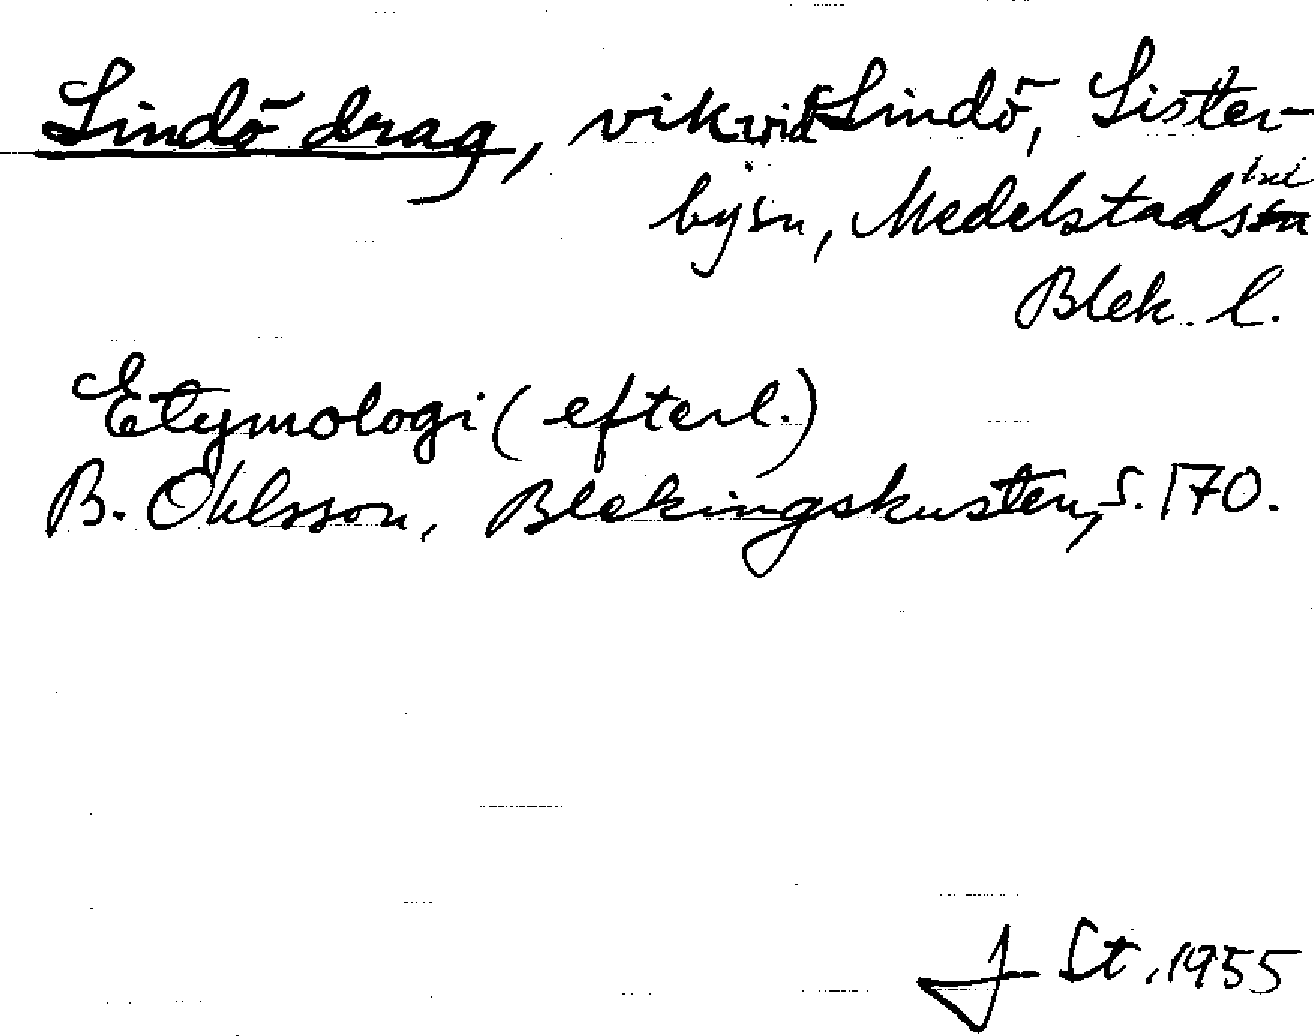 Lindö drag, vik vid Lindö, Lister-
bysn, Medelstads hd
Blek. l.
Etymologi (efterl.)
B. Ohlsson, Blekingskusten, s. 170.
J St. 1955